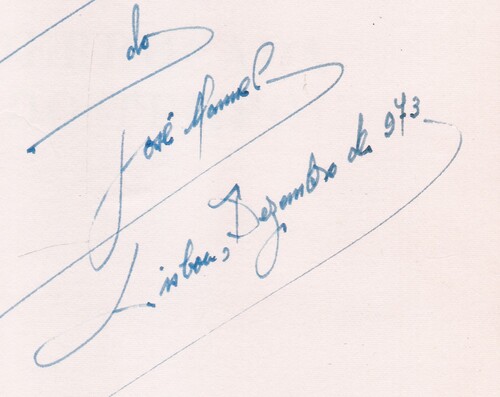 do
José Manuel
Lisboa, Dezembro de 973